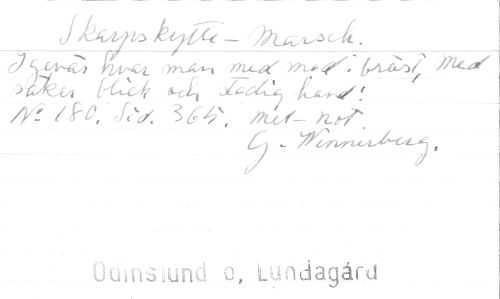 Skarpskytte-Marsch.
I gevär hvar man med mod i bröst, med
säker blick och stadig hand!
No 180. Sid. 365. met-not.
G. Winnerberg.
Odinslund o, Lundagård